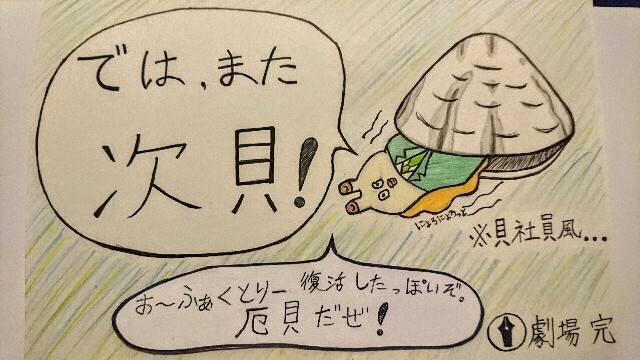 では、また
次貝!
にょろにょろっと
※貝社員風...
お〜ふぁくとりー 復活したっぽいぞ。
厄貝だぜ!
劇場 完